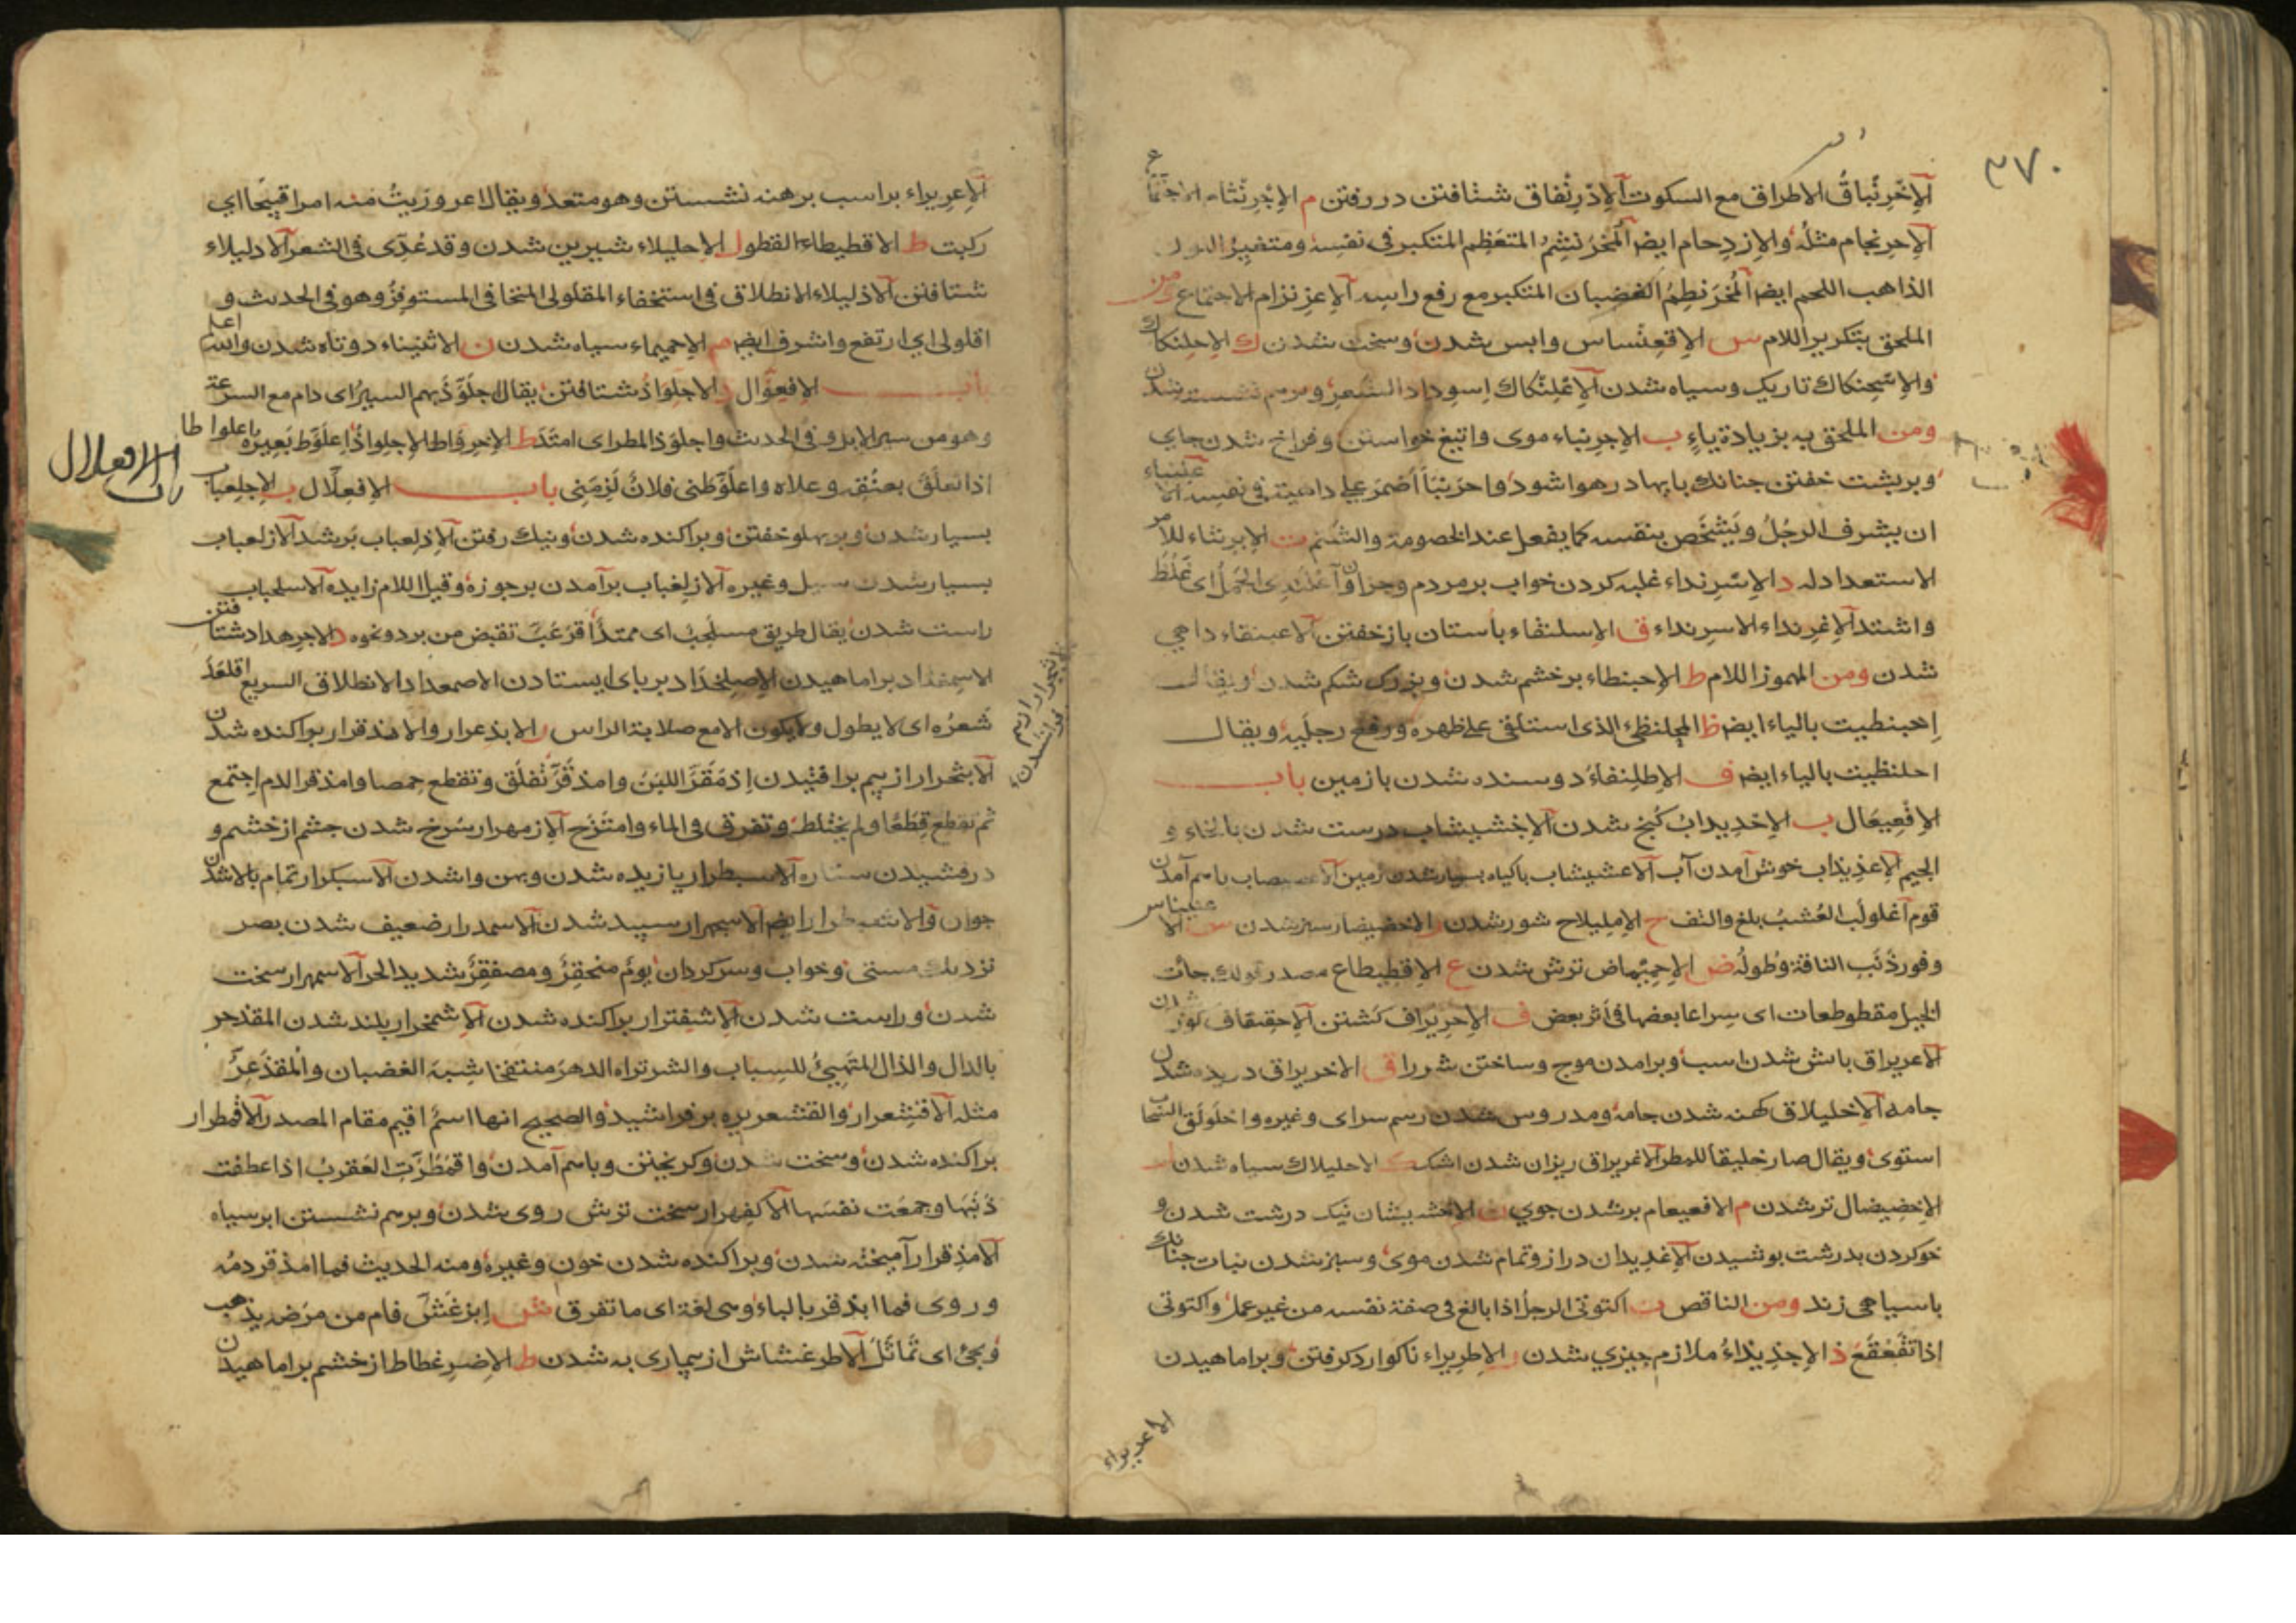 ٣٧٠
الاخرنباق الاطراق مع السكوت الادرنفاق شتافتن در رفتن م الاجرنثام الاجتماع
الاحرنجام مثله والازدحام ايض المخرنشم المتعظم المتكبر فى نفسه ومتغير اللون
الذاهب اللحم ايض المخرنطم الغضبان المتكبر مع رفع راسه الاعرنزام الاجتماع ومن
الملحق بتكرير اللام س الاقعنساس وابس شدن وسخت شدن ك الاحلنكاك
والاسحنكاك تاريك وسياه شدن الاعلنكاك اسوداد الشعر وبرهم نشستن
ومن الملحق به بزيادة ياء ب الاجرنباء موى واتيغ خواستن وفراخ شدن جاى
وبر پشت خفتن چنانك پايها در هوا شود واحرنبا اضمر على داهية فى نفسه الا
ان يشرف الرجل ويشخص بنفسه كما يفعل عند الخصومة والشتم ت الابرنتاء للامر
الاستعداد له د الاسرنداء غلبه كردن خواب بر مردم وجزاو اعلندى الجمل اى غلظ
واشتد الاغرنداء الاسرنداء ق الاسلنقاء باستان باز خفتن الاعبنقاء داهى
شدن ومن المهموز اللام ط الاحبنطاء برخشم شدن وبزرك شكم شدن ويقال
احبنطيت بالياء ايض ظ المحلنظئ الذى استلقى على ظهره ورفع رجليه ويقال
احلنظيت بالياء ايض ف الاطلنفاء دوسنده شدن بازمين باب
الافعيعال ب الاخديداب كنج شدن الاخشيشاب درست شدن بالخاء و
الجيم الاعذيذاب خوش آمدن آب الاعشيشاب باكياه بسيار شدن زمين الاعصيصاب باهم آمدن
قوم اغلولب العشب بلغ والتف ح الامليلاح شور شدن ر الاخضيضار سبز شدن س الا
وفور ذنب الناقة وطوله ض الاحميماض ترش شدن ع الاقطيطاع مصدر قولك جات
الخيل مقطوطعات اى سراعا بعضها فى اثر بعض ف الاحريراف كشتن الاحقيقاف كوژ شدن
الاعريراق بانش شدن اسب وبرامدن موج وساختن شر را ق الاخريراق دريده شدن
جامه الاخليلاق كهنه شدن جامه ومدروس شدن رسم سراى وغيره واخلولق السحاب
استوى ويقال صار خليقا للمطر الاغريراق ريزان شدن اشك ك الاحليلاك سياه شدن ل
الاخضيضال تر شدن م الافعيعام پر شدن جوى ن الاخشيشان نيك درشت شدن و
خو كردن بدرشت پوشيدن الاغديدان دراز وتمام شدن موى وسبز شدن نبات چنانك
باسياهى زند ومن الناقص ت اكتوتى الرجل اذا بالغ فى صفة نفسه من غير عمل واكتوتى
اذا تقعقع ذ الاجذيذاء ملازم چيزى شدن ر الاطريراء ناكوارد كرفتن وبراماهيدن
الاعريراء
الاعريراء بر اسب برهنه نشستن وهو متعد ويقال اعروريت منه امرا قبيحا اى
ركبت ط الاقطيطاء القطو ل الاحليلاء شيرين شدن وقد عدى فى الشعر الادليلاء
شتافتن الاذليلاء الانطلاق فى استخفاء المقلولى المتجافى المستوفز وهو فى الحديث و
اقلولى اى ارتفع واشرف ايض م الاحميماء سياه شدن ن الاثنيناء دوتاه شدن والله اعلم
باب الافعوال ذ الاجلواذ شتافتن يقال اجلوذ بهم السير اى دام مع السرعة
وهو من سير الابل وفى الحديث واجلوذ المطر اى امتد ط الاخرواط الاجلواذ اعلوط بعيره اعلواطا
اذا تعلق بعنقه وعلاه واعلوطنى فلان لزمنى باب الافعلال ب الاجلعباب
باب الافعلال
بسيار شدن وبر پهلو خفتن وپراكنده شدن ونيك رفتن الاذلعباب برشد الازلعباب
بسيار شدن سيل وغيره الازلغباب برآمدن پر جوزه وقيل اللام زايده الاسلحباب
راست شدن يقال طريق مسلحب اى ممتد اقرعب تقبض من برد ونحوه د الاجرهداد شتافتن
الاسمغداد براماهيدن الاصلخداد بر پاى ايستادن الاصمعداد الانطلاق السريع اقلعد
شعره اى لا يطول ولا يكون الا مع صلابة الراس ر الابذعرار والابذقرار پراكنده شدن
الاثجرار از بيم برافتيدن اذمقر اللبن وامذقر تفلق وتقطع حمصا وامذقر الدم اجتمع
ثم تقطع قطعا ولم يختلط وتفرق فى الماء وامتزج الازمهرار سرخ شدن چشم از خشم و
درفشيدن ستاره الاسبطرار يازيده شدن وپهن واشدن الاسبكرار تمام بالا شدن
جوان والاسبطرار ايض الاسجهرار سپيد شدن الاسمدرار ضعيف شدن بصر
نزديك مستى وخواب وسركردان يوم مصمقر ومصمقر شديد الحر الاسمهرار سخت
شدن وراست شدن الاشفترار پراكنده شدن الاشمخرار بلند شدن المقذحر
بالدال والذال المتهيئ للسباب والشر تراه الدهر منتفخا شبه الغضبان والمقذعر
مثله الاقشعرار والقشعريره برفراشيد والصحيح انها اسم اقيم مقام المصدر الاقمطرار
پراكنده شدن وسخت شدن وكريختن وباهم آمدن واقمطرت العقرب اذا عطفت
ذنبها وجمعت نفسها الاكفهرار سخت ترش روى شدن وبرهم نشستن ابر سياه
الامذقرار آميخته شدن وپراكنده شدن خون وغيره ومنه الحديث فما امذقر دمه
وروى فما ابذقر بالباء وهى لغة اى ما تفرق ش ابرغش قام من مرض يذهب
ويجئ اى تماثل الاطرغشاش از بيمارى به شدن ط الاضرغطاط از خشم براماهيدن